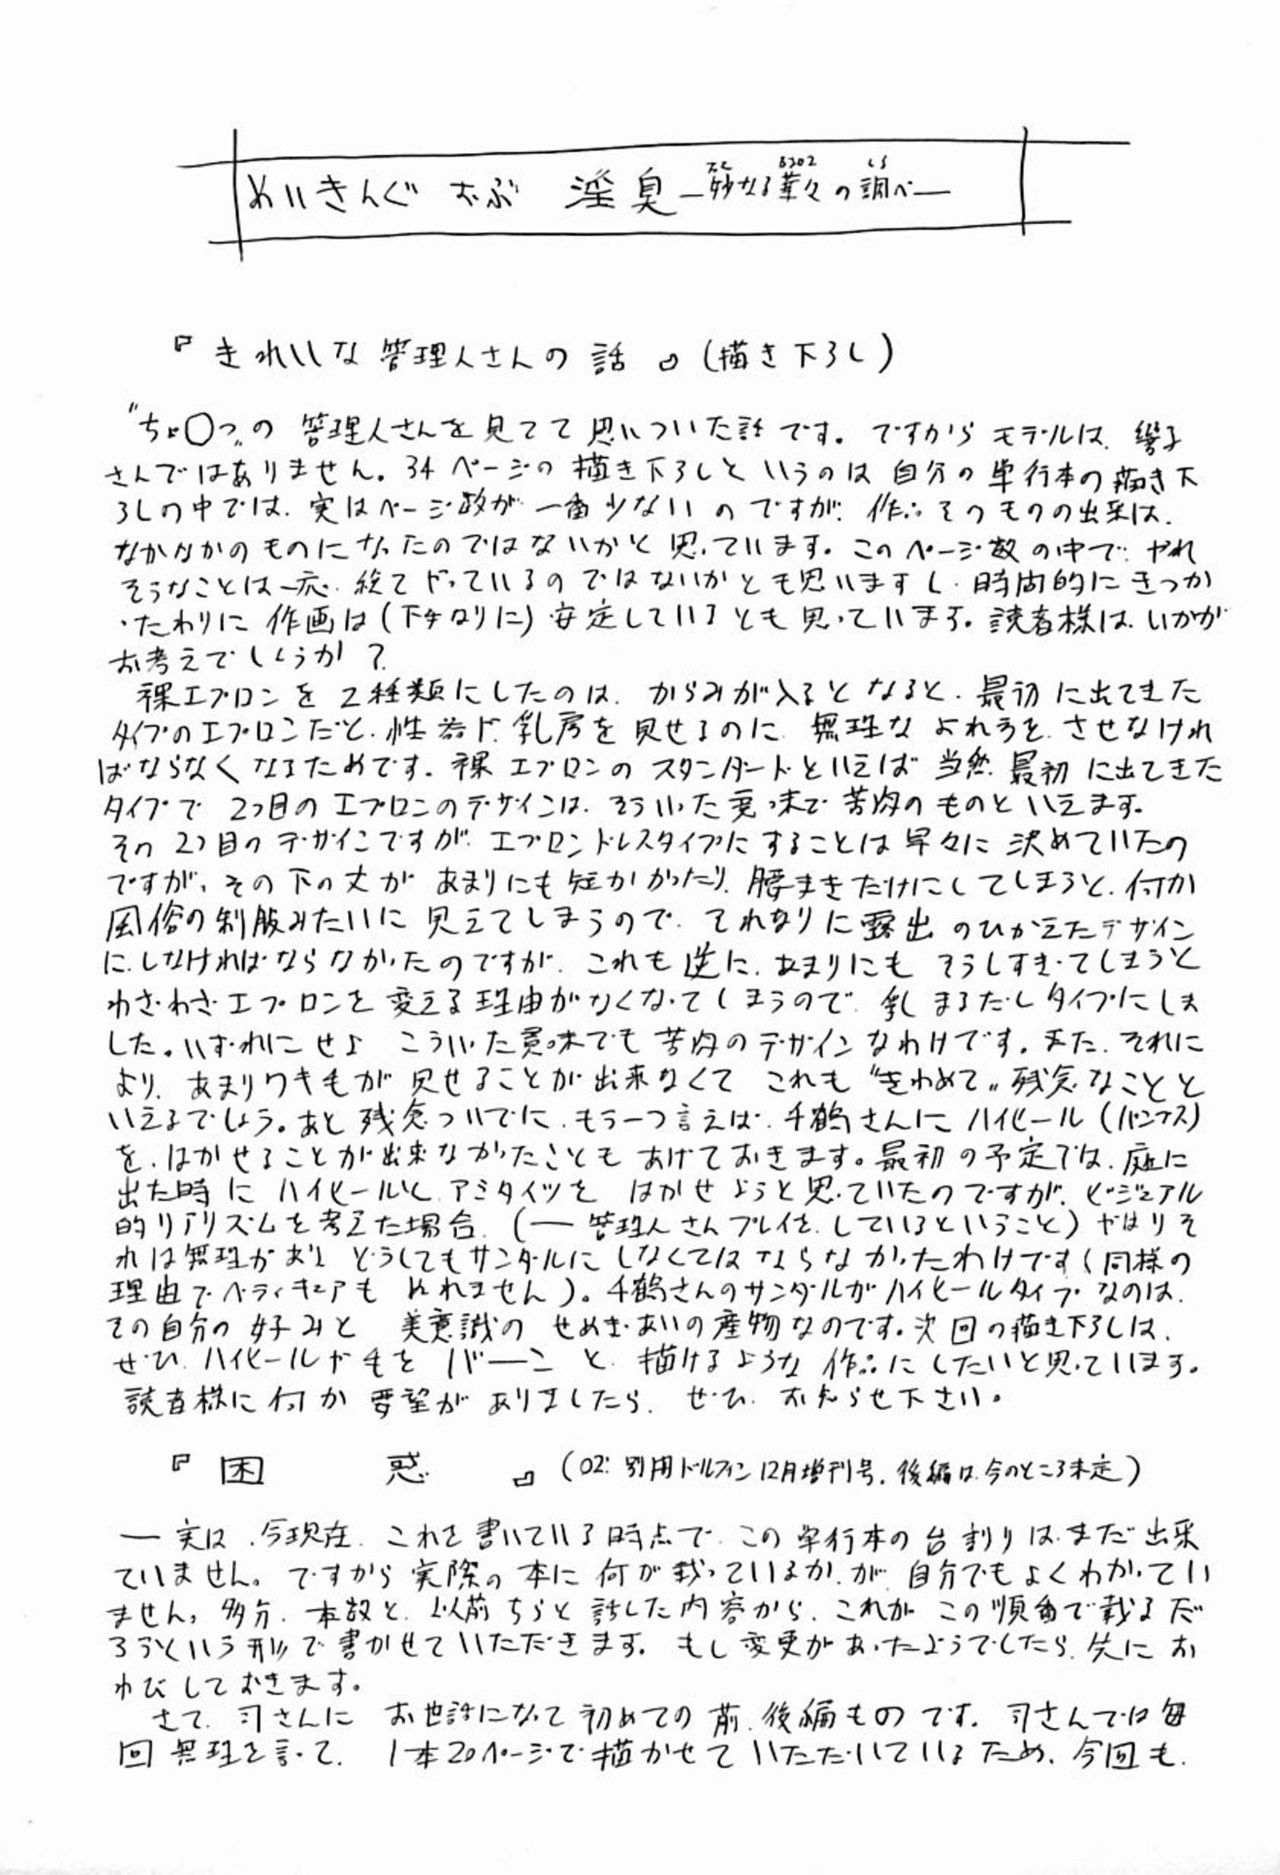 めいきんぐ おぶ 淫臭 ―妙なる華々の調べ―
『きれいな管理人さんの話』(描き下ろし)
“ちょ〇っ〟の 管理人さんを見てて思いついた話です。ですからモデルは、響子
さんではありません。34ページの描き下ろしというのは自分の単行本の描き下
ろしの中では、実はページ数が一番少ないのですが、作品そのものの出来は、
なかなかのものになったのではないかと思っています。このページ数の中で、やれ
そうなことは一応、総てやっているのではないかとも思いますし、時間的にきつか
ったわりに作画は(下手なりに)安定しているとも思っています。読者様は、いかが
お考えでしょうか?
裸エプロンを2種類にしたのは、からみが入るとなると、最初に出てきた
タイプのエプロンだと、性器や乳房を見せるのに、無理なよれ方を、させなけれ
ばならなくなるためです。裸エプロンのスタンダードといえば当然、最初に出てきた
タイプで 2つ目のエプロンのデザインは、そういった意味で苦肉のものといえます。
その2つ目のデザインですが、エプロンドレスタイプにすることは早々に決めていたの
ですが、その下の丈があまりにも短かかったり、腰まきだけにしてしまうと、何か
風俗の制服みたいに見えてしまうので、それなりに露出のひかえたデザイン
に、しなければならなかったのですが、これも逆に、あまりにもそうしすぎてしまうと
わざわざエプロンを変える理由がなくなってしまうので、乳まるだしタイプにしま
した。いずれにせよ こういった意味でも苦肉のデザインなわけです。また、それに
より、あまりワキ毛が見せることが出来なくて これも“きわめて〟残念なことと
いえるでしょう。あと残念ついでに、もう一つ言えば、千鶴さんにハイヒール(パンプス)
を、はかせることが出来なかったこともあげておきます。最初の予定では、庭に
出た時にハイヒールと、アミタイツをはかせようと思っていたのですが、ビジュアル
的リアリズムを考えた場合、(―管理人さんプレイを、しているということ)やはりそ
れは無理があり どうしてもサンダルにしなくてはならなかったわけです(同様の
理由でペディキュアも ぬれません)。千鶴さんのサンダルがハイヒールタイプなのは、
その自分の好みと 美意識の せめぎあいの産物なのです。次回の描き下ろしは、
ぜひ、ハイヒールや毛を バーンと、描けるような作品にしたいと思っています。
読者様に何か要望がありましたら、ぜひ、お知らせ下さい。
『困 惑 』(02: 別冊ドルフィン12月増刊号、後編は、今のところ未定)
― 実は、今現在、これを書いている時点で、この単行本の台割りは、まだ出来
ていません。ですから実際の本に何が載っているか、が、自分でもよくわかってい
ません。多分、本数と、以前ちらと話した内容から、これが、この順番で載るだ
ろうという形で書かせていただきます。もし変更があったようでしたら、先にお
わびしておきます。
さて、司さんに お世話になって初めての前、後編ものです。司さんでは毎
回無理を言って、1本20ページで描かせていただいているため、今回も、